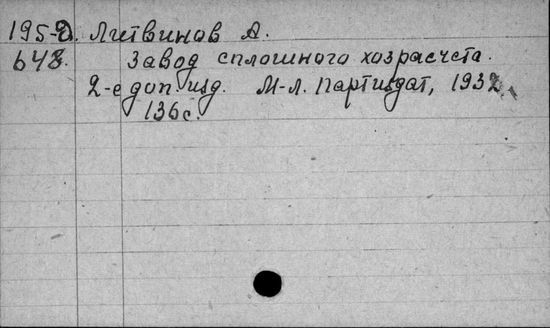 195-2. Литвинов А.
648. Завод сплошного хозрасчета.
2-е доп. изд. М-л. Партиздат, 1932.
136 с.